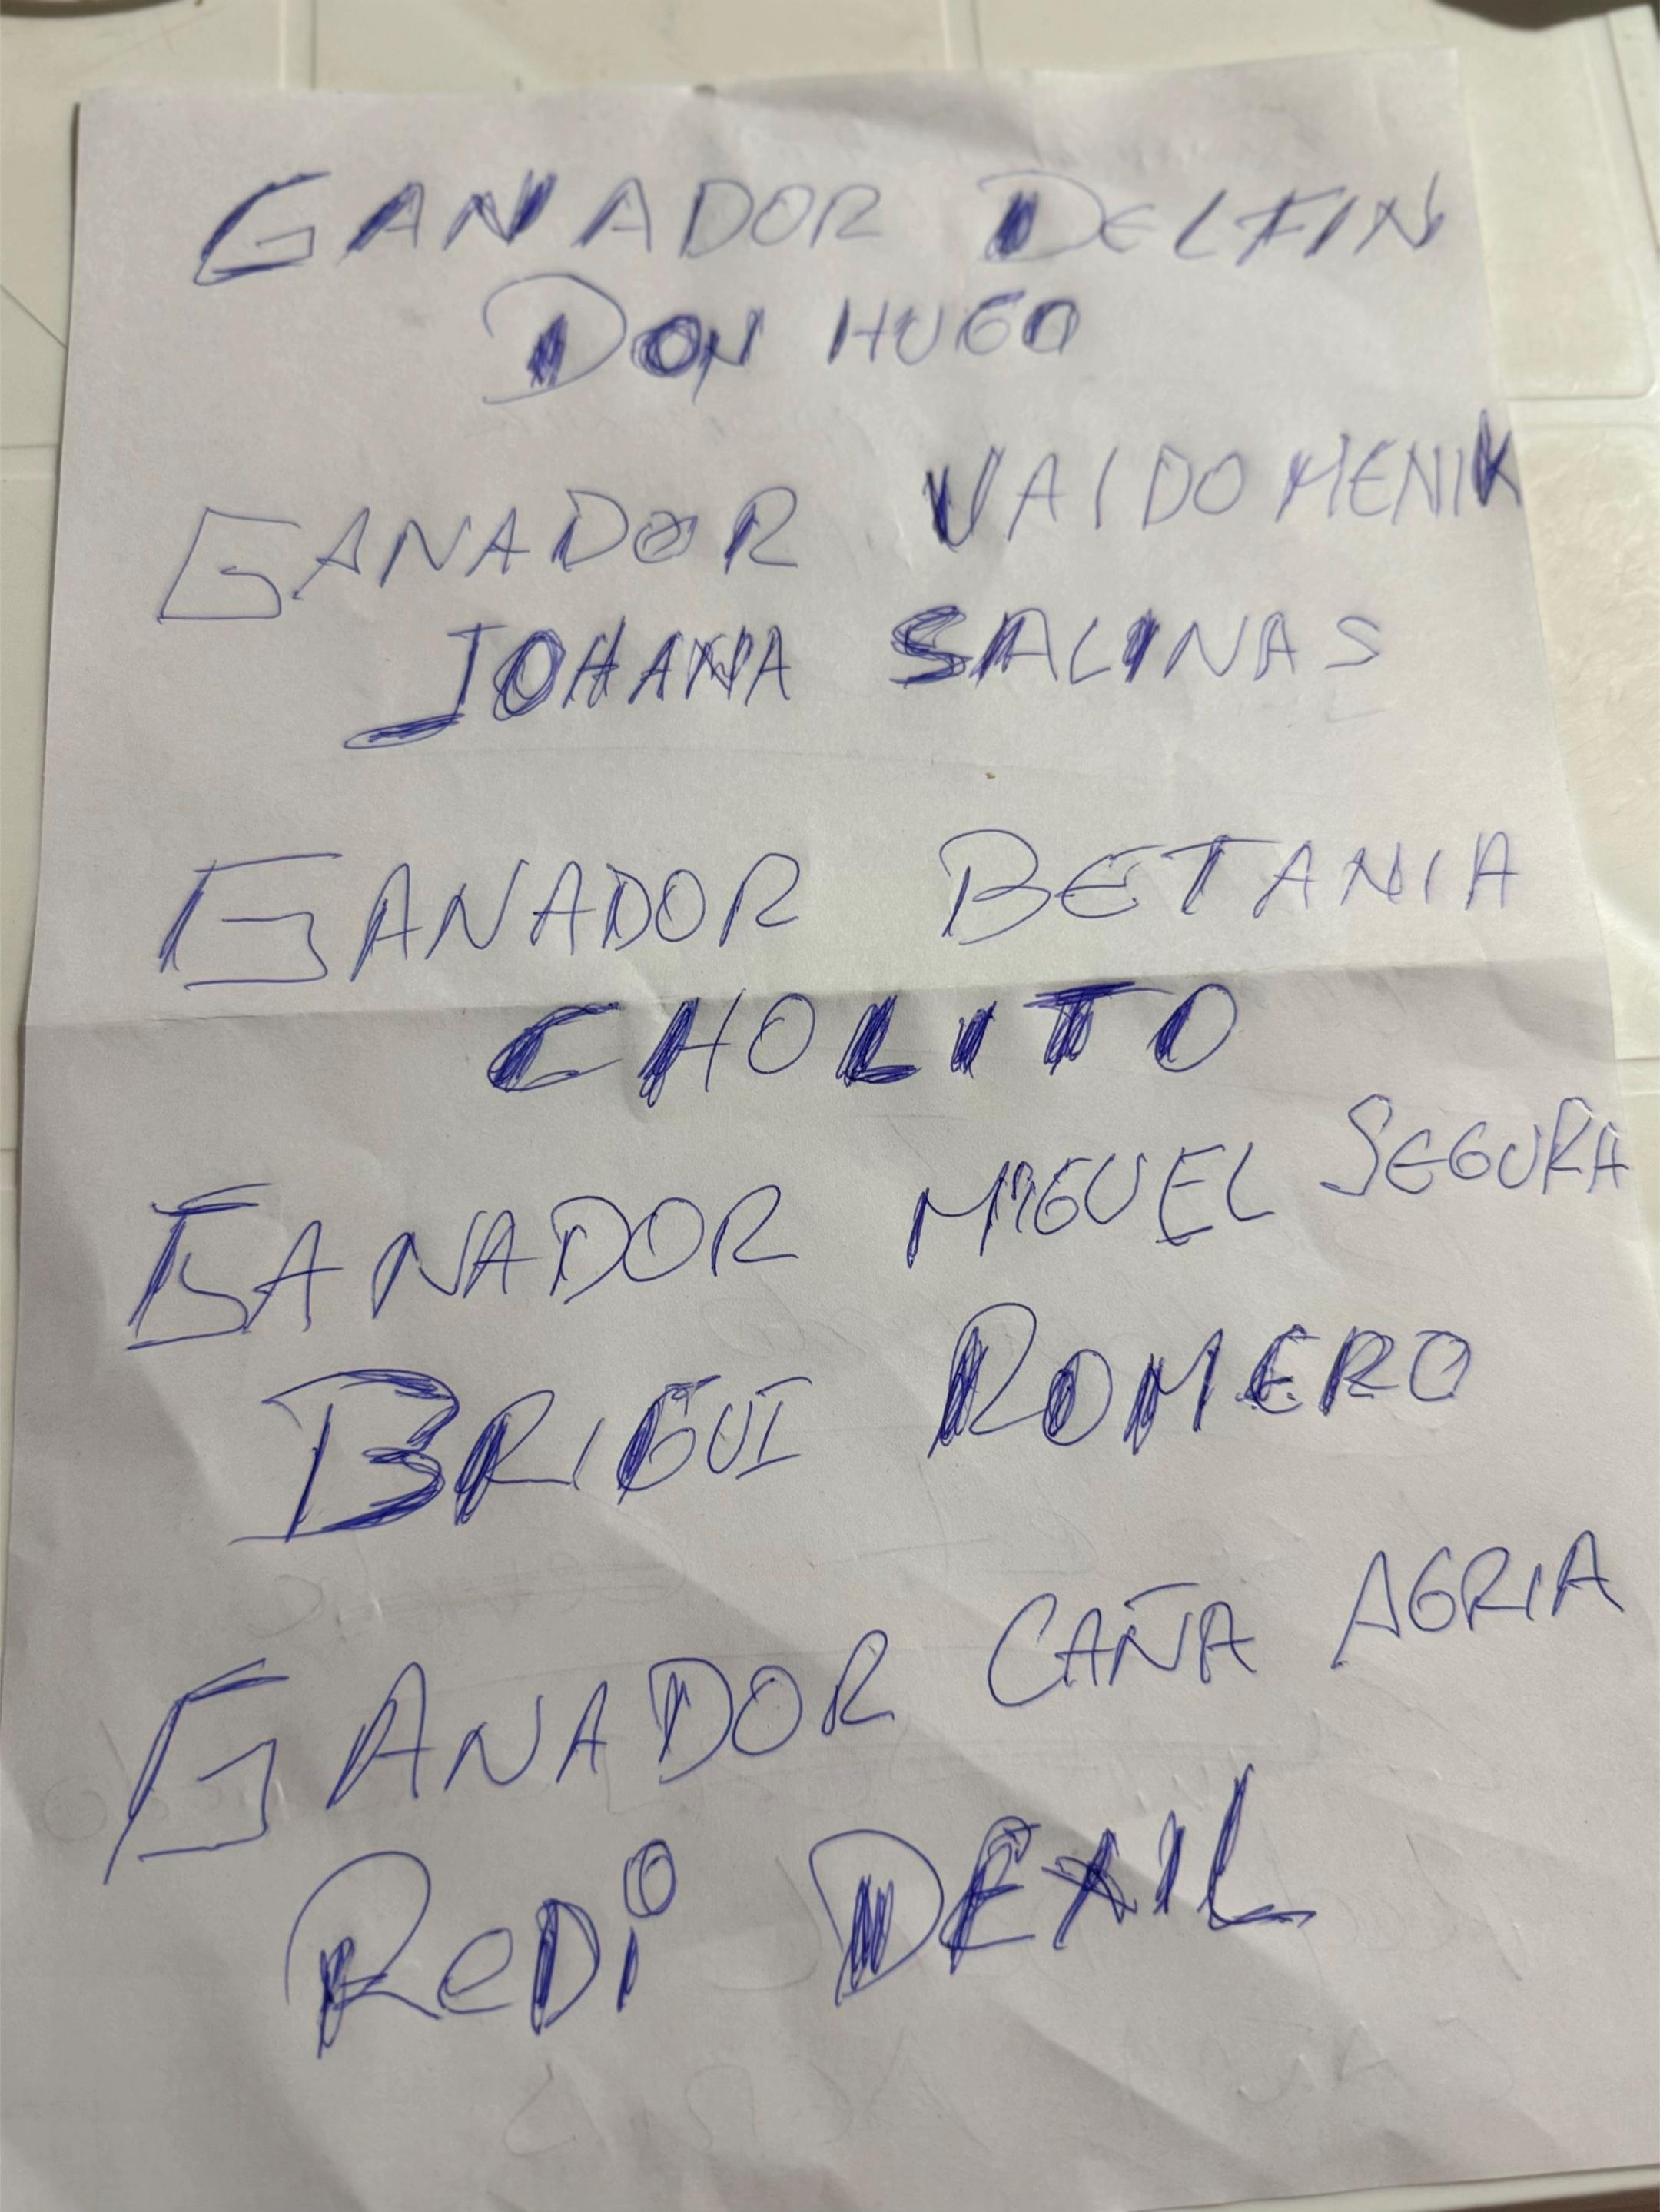 GANADOR DELFIN
DON HUGO
GANADOR VALDOMENIK
JOHANA SALINAS
GANADOR BETANIA
CHOLITO
GANADOR MIGUEL SEGURA
BRIGUI ROMERO
GANADOR CAÑA AGRIA
ReDi DEXIL